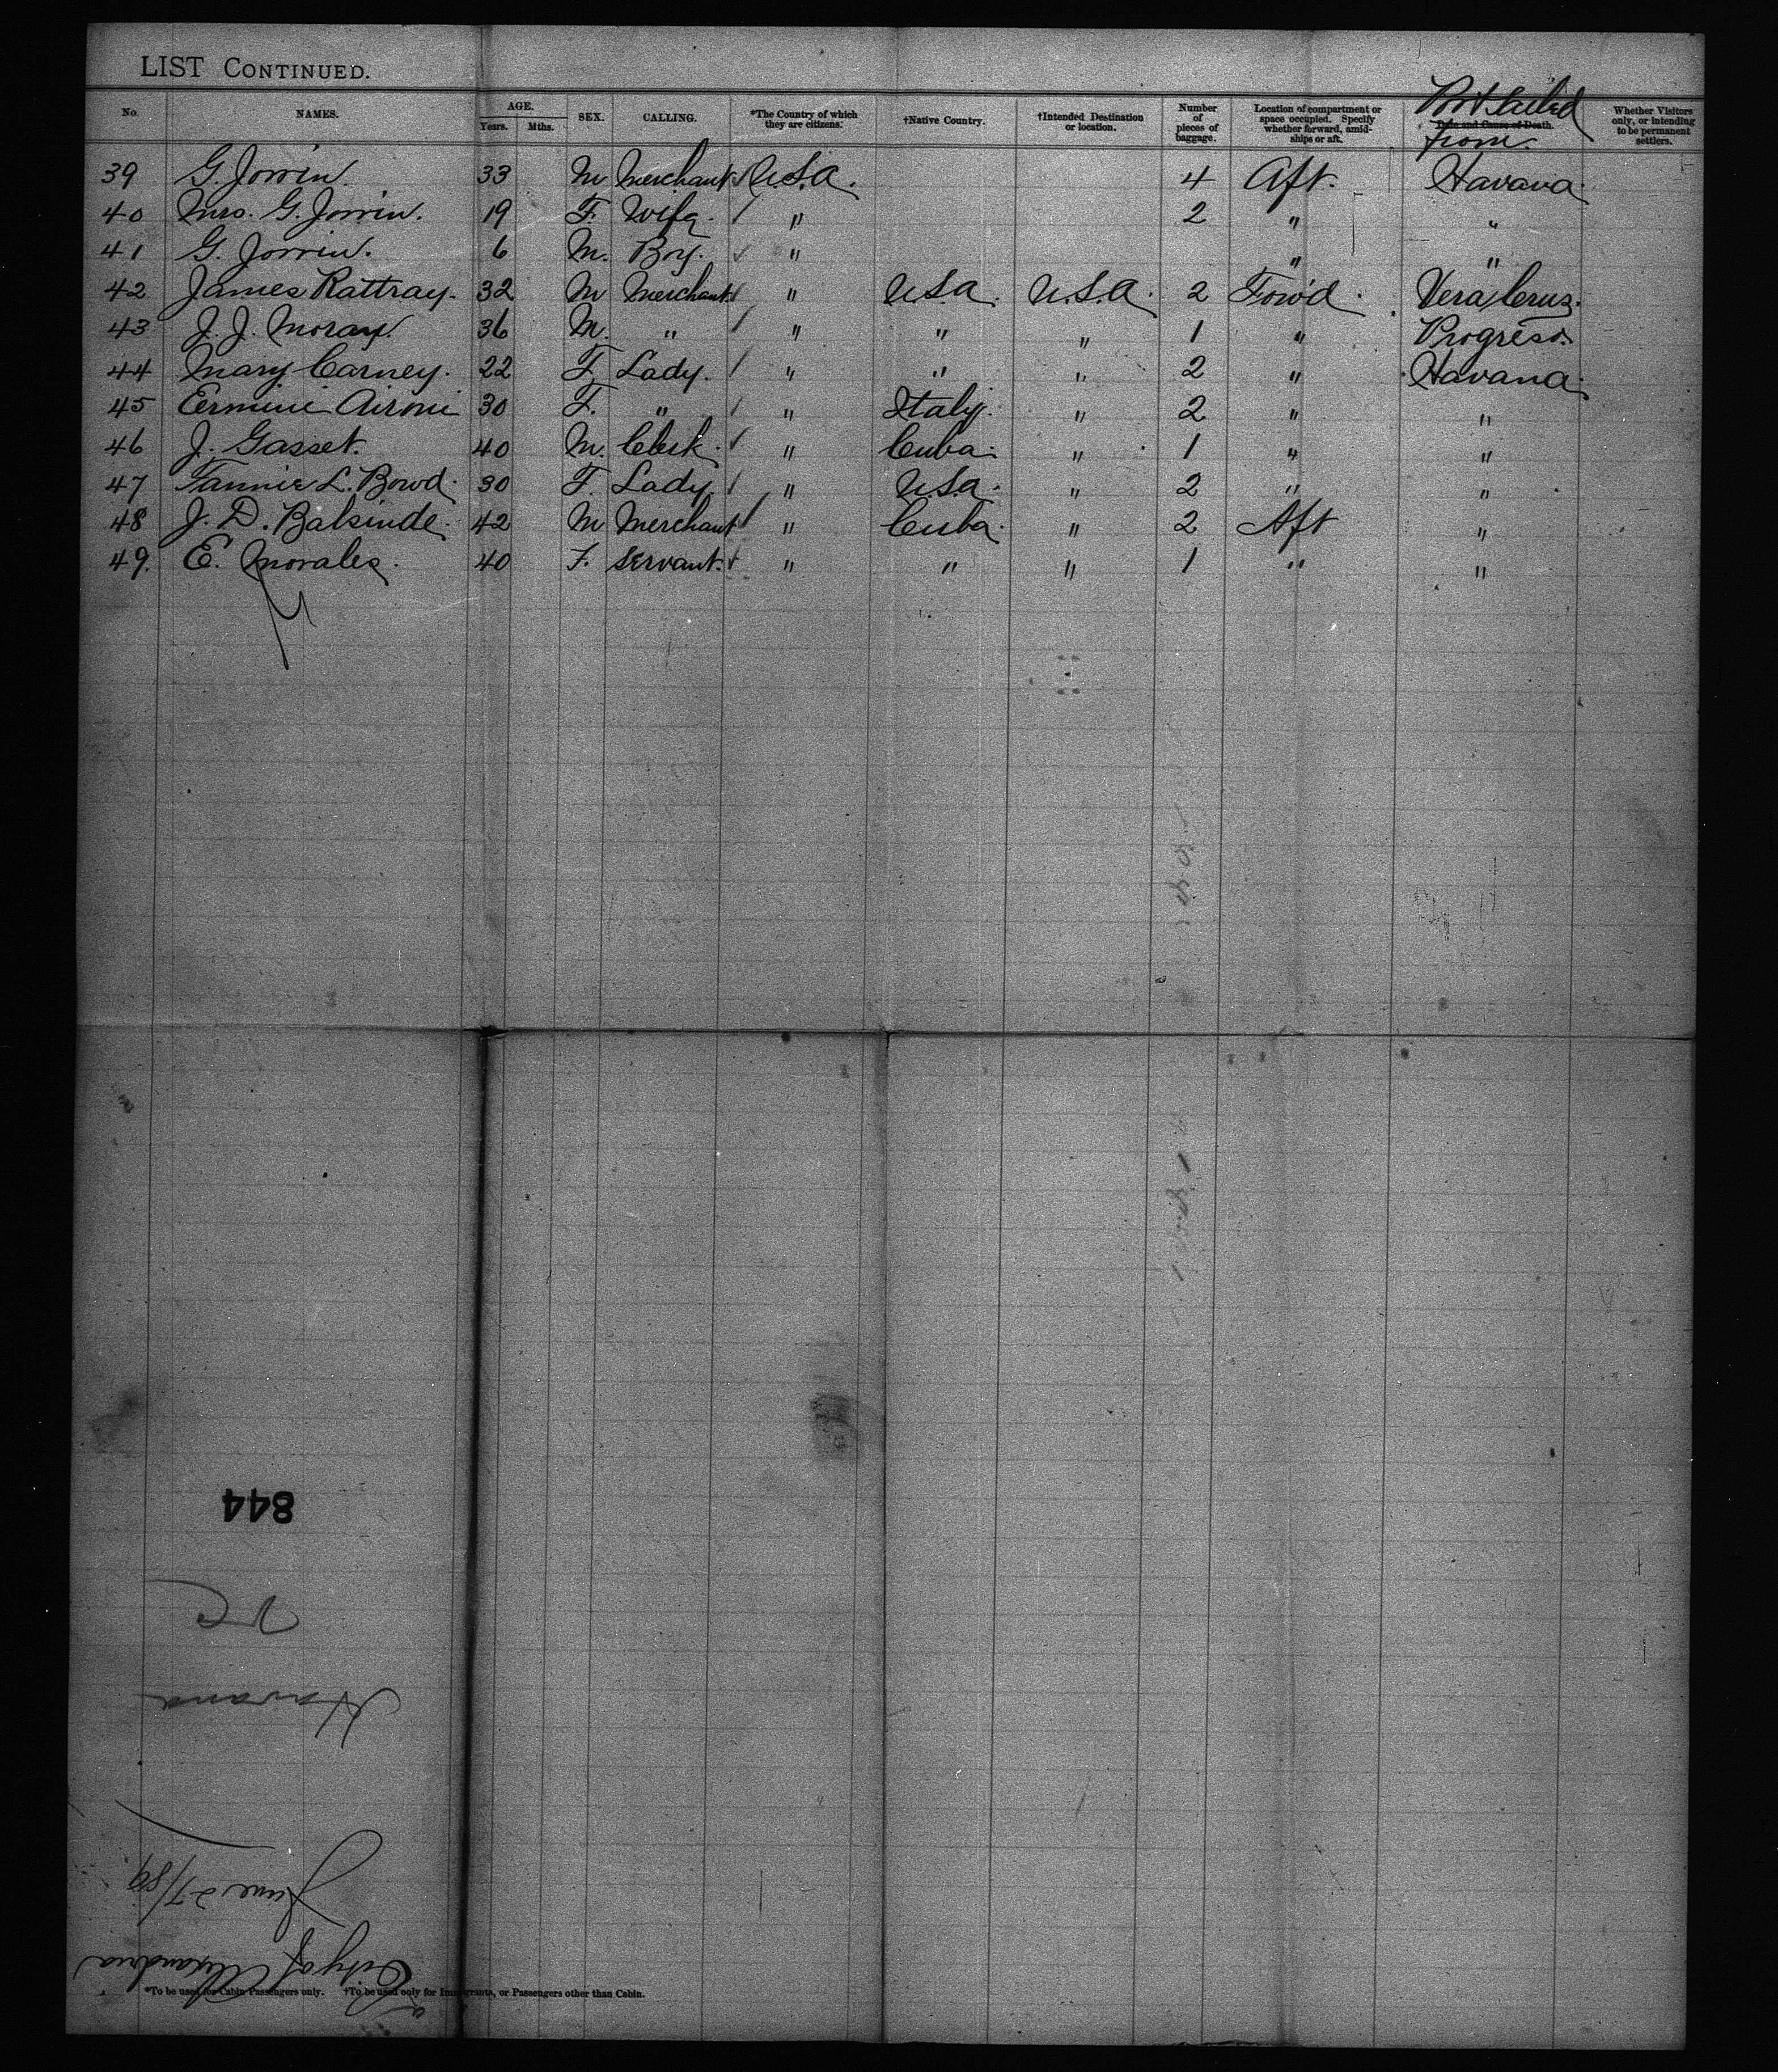 LIST CONTINUED.
No. NAMES. AGE. Years. Mths. SEX. CALLING. *The Country of which they are citizens. †Native Country. †Intended Destination or location. Number of pieces of baggage. Location of compartment or space occupied. Specify whether forward, amidships or aft. Date and Cause of Death. Port sailed from. Whether Visitors only, or intending to be permanent settlers.
39 G. Jorrin. 33 M Merchant U.S.A. 4 Aft. Havana.
40 Mrs. G. Jorrin. 19 F. Wife. " 2 " "
41 G. Jorrin. 6 M. Boy. " " "
42 James Rattray. 32 M Merchant " U.S.A. U.S.A. 2 Forw'd. Vera Cruz.
43 J. J. Moray. 36 M. " " " " 1 " Progreso.
44 Mary Carney. 22 F. Lady. " " " 2 " Havana.
45 Ermine Aironi 30 F. " " Italy. " 2 " "
46 J. Gasset. 40 M. Clerk. " Cuba. " 1 " "
47 Fannie L. Bowd. 30 F. Lady. " U.S.A. " 2 " "
48 J. D. Balsinde. 42 M Merchant " Cuba. " 2 Aft "
49. E. Morales. 40 F. Servant. " " " 1 " "
844
VC
Havana
June 27/89
City of Alexandria
*To be used for Cabin Passengers only. †To be used only for Immigrants, or Passengers other than Cabin.